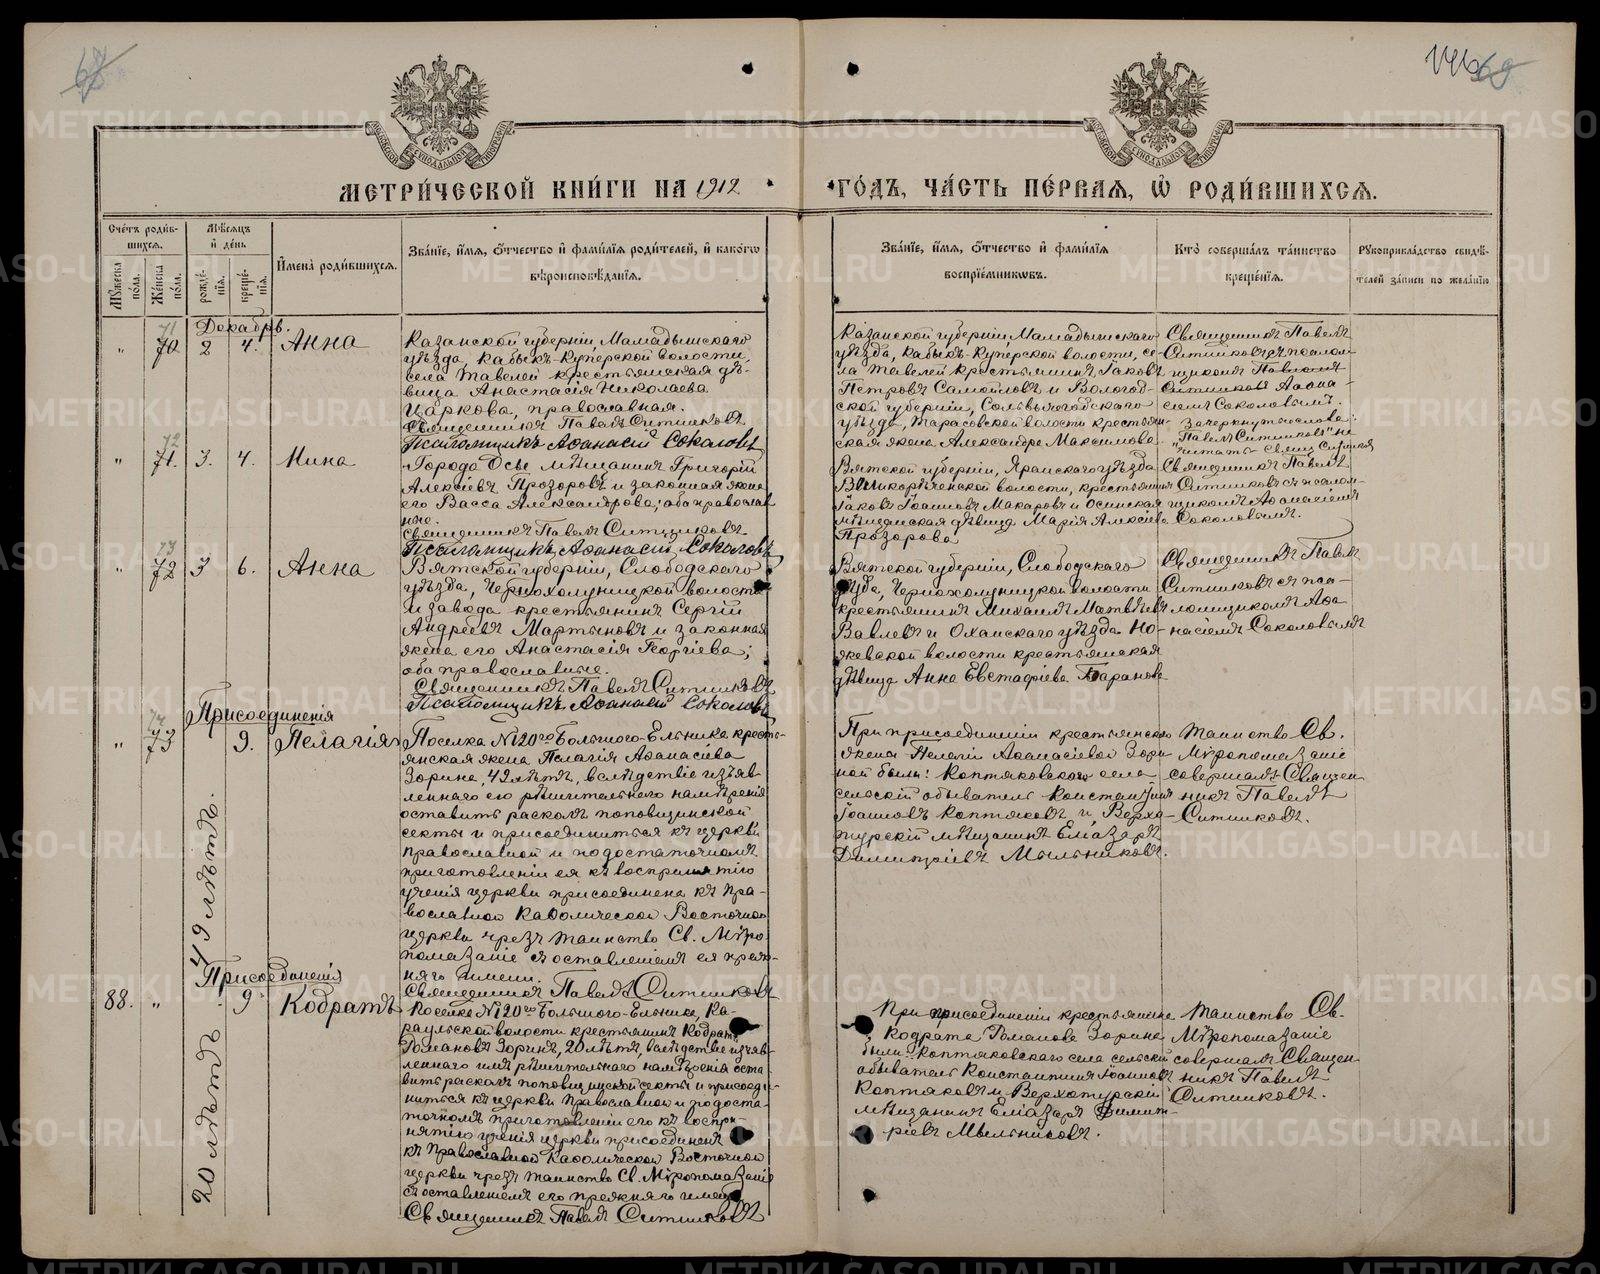 67
146 69
МОСКОВСКОЙ СѴНОДАЛЬНОЙ ТИПОГРАФІИ
МОСКОВСКОЙ СѴНОДАЛЬНОЙ ТИПОГРАФІИ
МЕТРИ́ЧЕСКОЙ КНИ́ГИ НА 1912
ГО́ДЪ, ЧА́СТЬ ПЕ́РВАЯ, Ѡ҆ РОДИ́ВШИХСЯ.
Сче́тъ роди́в-
шихся.
Мѣ́сяцъ
и҆ де́нь
Му́жеска по́ла.
Же́нска по́ла.
рожде́-
нія.
креще́-
нія.
И҆мена̀ роди́вшихся.
Зва́ніе, и҆́мя, ѻ҆́тчество и҆ фами́лія роди́телей, и҆ како́гѡ
вѣроисповѣ́данія.
Зва́ніе, и҆́мя, ѻ҆́тчество и҆ фами́лія
воспріе́мникѡвъ.
Кто̀ соверша́лъ та́инство
креще́нія.
Рꙋкоприкла́дство свидѣ́-
телей за́писи по жела́нію
Декабрь.
" 71 70 2 4. Анна
Казанской губерніи, Мамадышскаго
уѣзда, Кабыкъ-Куперской волости,
села Тавелей крестьянская дѣ-
вица Анастасія Николаева
Царкова, православная.
Священникъ Павелъ Ситниковъ
Псаломщикъ Аѳанасій Соколовъ
Казанской губерніи, Мамадышскаго
уѣзда, Кабыкъ-Куперской волости, се-
ла Тавелей крестьянинъ Іаковъ
Петровъ Самойловъ и Вологод-
ской губерніи, Сольвычегодскаго
уѣзда, Тарасовской волости крестьян-
ская жена Александра Максимова
Священникъ Павелъ
Ситниковъ съ псалом-
щикомъ Павломъ
Ситниковъ Аѳана-
сіемъ Соколовымъ.
Зачеркнутое слово:
"Павелъ Ситниковъ" не
читать. Свящ. Ситниковъ
" 72 71. 3. 4. Нина
Города Осы мѣщанинъ Григорій
Алексіевъ Прозоровъ и законная жена
его Васса Александрова; оба православ
ные.
Священникъ Павелъ Ситниковъ
Псаломщикъ Аѳанасій Соколовъ
Вятской губерніи, Яранскаго уѣзда
Великорѣченской волости, крестьянинъ
Іаковъ Іоанновъ Макаровъ и Осинская
мѣщанская дѣвица Марія Алексіева
Прозорова
Священникъ Павелъ
Ситниковъ съ псалом-
щикомъ Аѳанасіемъ
Соколовымъ.
" 73 72 3 6. Анна
Вятской губерніи, Слободского
уѣзда, Чернохолуницкой волости
и завода крестьянинъ Сергій
Андреевъ Мартыновъ и законная
жена его Анастасія Георгіева;
оба православные.
Священникъ Павелъ Ситниковъ
Псаломщикъ Аѳанасій Соколовъ
Вятской губерніи, Слободского
уѣзда, Чернохолуницкой волости
крестьянинъ Михаилъ Матвѣевъ
Вавлевъ и Оханскаго уѣзда Но-
жевской волости крестьянская
дѣвица Анна Евстафіева Баранова
Священникъ Павелъ
Ситниковъ съ пса-
ломщикомъ Аѳа
насіемъ Соколовымъ
Присоединенія
" 74 73 9. Пелагія
49 лѣтъ.
Поселка №120го Большого-Ельника кресть-
янская жена Пелагія Аѳанасіева
Зорина, 49 лѣтъ, вслѣдствіе изъяв-
леннаго ею рѣшительнаго намѣренія
оставить расколъ поповщинской
секты и присоединиться къ церкви
православной и по достаточномъ
приготовленіи ея къ воспріятію
ученія церкви присоединена къ Пра-
вославной Каѳолической Восточной
церкви чрезъ таинство Св. Мѵро
помазаніе съ оставленіемъ ея преж-
няго имени.
Священникъ Павелъ Ситниковъ
При присоединеніи крестьянской
жены Пелагіи Аѳанасіевой Зори-
ной были: Коптяковскаго села
сельскій обыватель Константинъ
Іоанновъ Коптяковъ и Верхо-
турскій мѣщанинъ Елеазаръ
Димитріевъ Мыльниковъ.
Таинство Св.
Мѵропомазаніе
совершалъ Священ
никъ Павелъ
Ситниковъ.
Присоединенія
88. " 9 Кодратъ
20 лѣтъ
Поселка №120го Большого-Ельника, Ка-
раульской волости крестьянинъ Кодратъ
Романовъ Зоринъ, 20 лѣтъ, вслѣдствіе изъяв-
леннаго имъ рѣшительнаго намѣренія оста
вить расколъ поповщинской секты и присоеди-
ниться къ церкви Православной и по доста-
точномъ приготовленіи его къ воспри-
нятію ученія церкви присоединенъ
къ Православной Каѳолической Восточной
церкви чрезъ таинство Св. Мѵропомазаніе
съ оставленіемъ его прежняго имени
Священникъ Павелъ Ситниковъ
При присоединеніи крестьянина
Кодрата Романова Зорина
были: Коптяковскаго села сельскій
обыватель Константинъ Іоанновъ
Коптяковъ и Верхотурскій
мѣщанинъ Елеазаръ Димит-
ріевъ Мыльниковъ.
Таинство Св.
Мѵропомазаніе
совершалъ Священ
никъ Павелъ
Ситниковъ.
METRIKI.GASO-URAL.RU